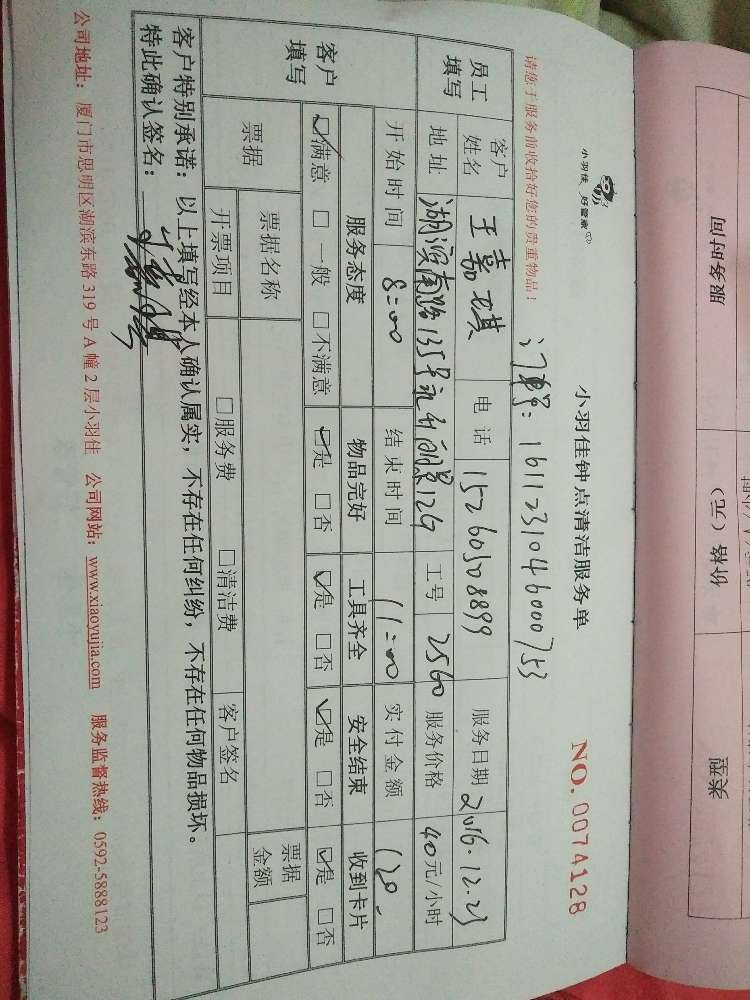 小羽佳 好管家
小羽佳钟点清洁服务单
NO. 0074128
请您于服务前收拾好您的贵重物品！
订单号：161123104600753
员工填写 客户姓名 王嘉琪 电话 15260508899 服务日期 2016.12.23
地址 湖滨南路135号 12G 工号 2560 服务价格 40元/小时
开始时间 8:00 结束时间 11:00 实付金额 120.
客户填写 服务态度 物品完好 工具齐全 安全结束 收到卡片
☑满意 □一般 □不满意 ☑是 □否 ☑是 □否 ☑是 □否 ☑是 □否
票据 票据名称 票据金额
开票项目 □服务费 □清洁费 客户签名
客户特别承诺：以上填写经本人确认属实，不存在任何纠纷，不存在任何物品损坏。
特此确认签名：
公司地址：厦门市思明区湖滨东路 319 号 A 幢 2 层小羽佳 公司网站：www.xiaoyujia.com 服务监督热线：0592-5888123
服务时间
价格（元）
类型